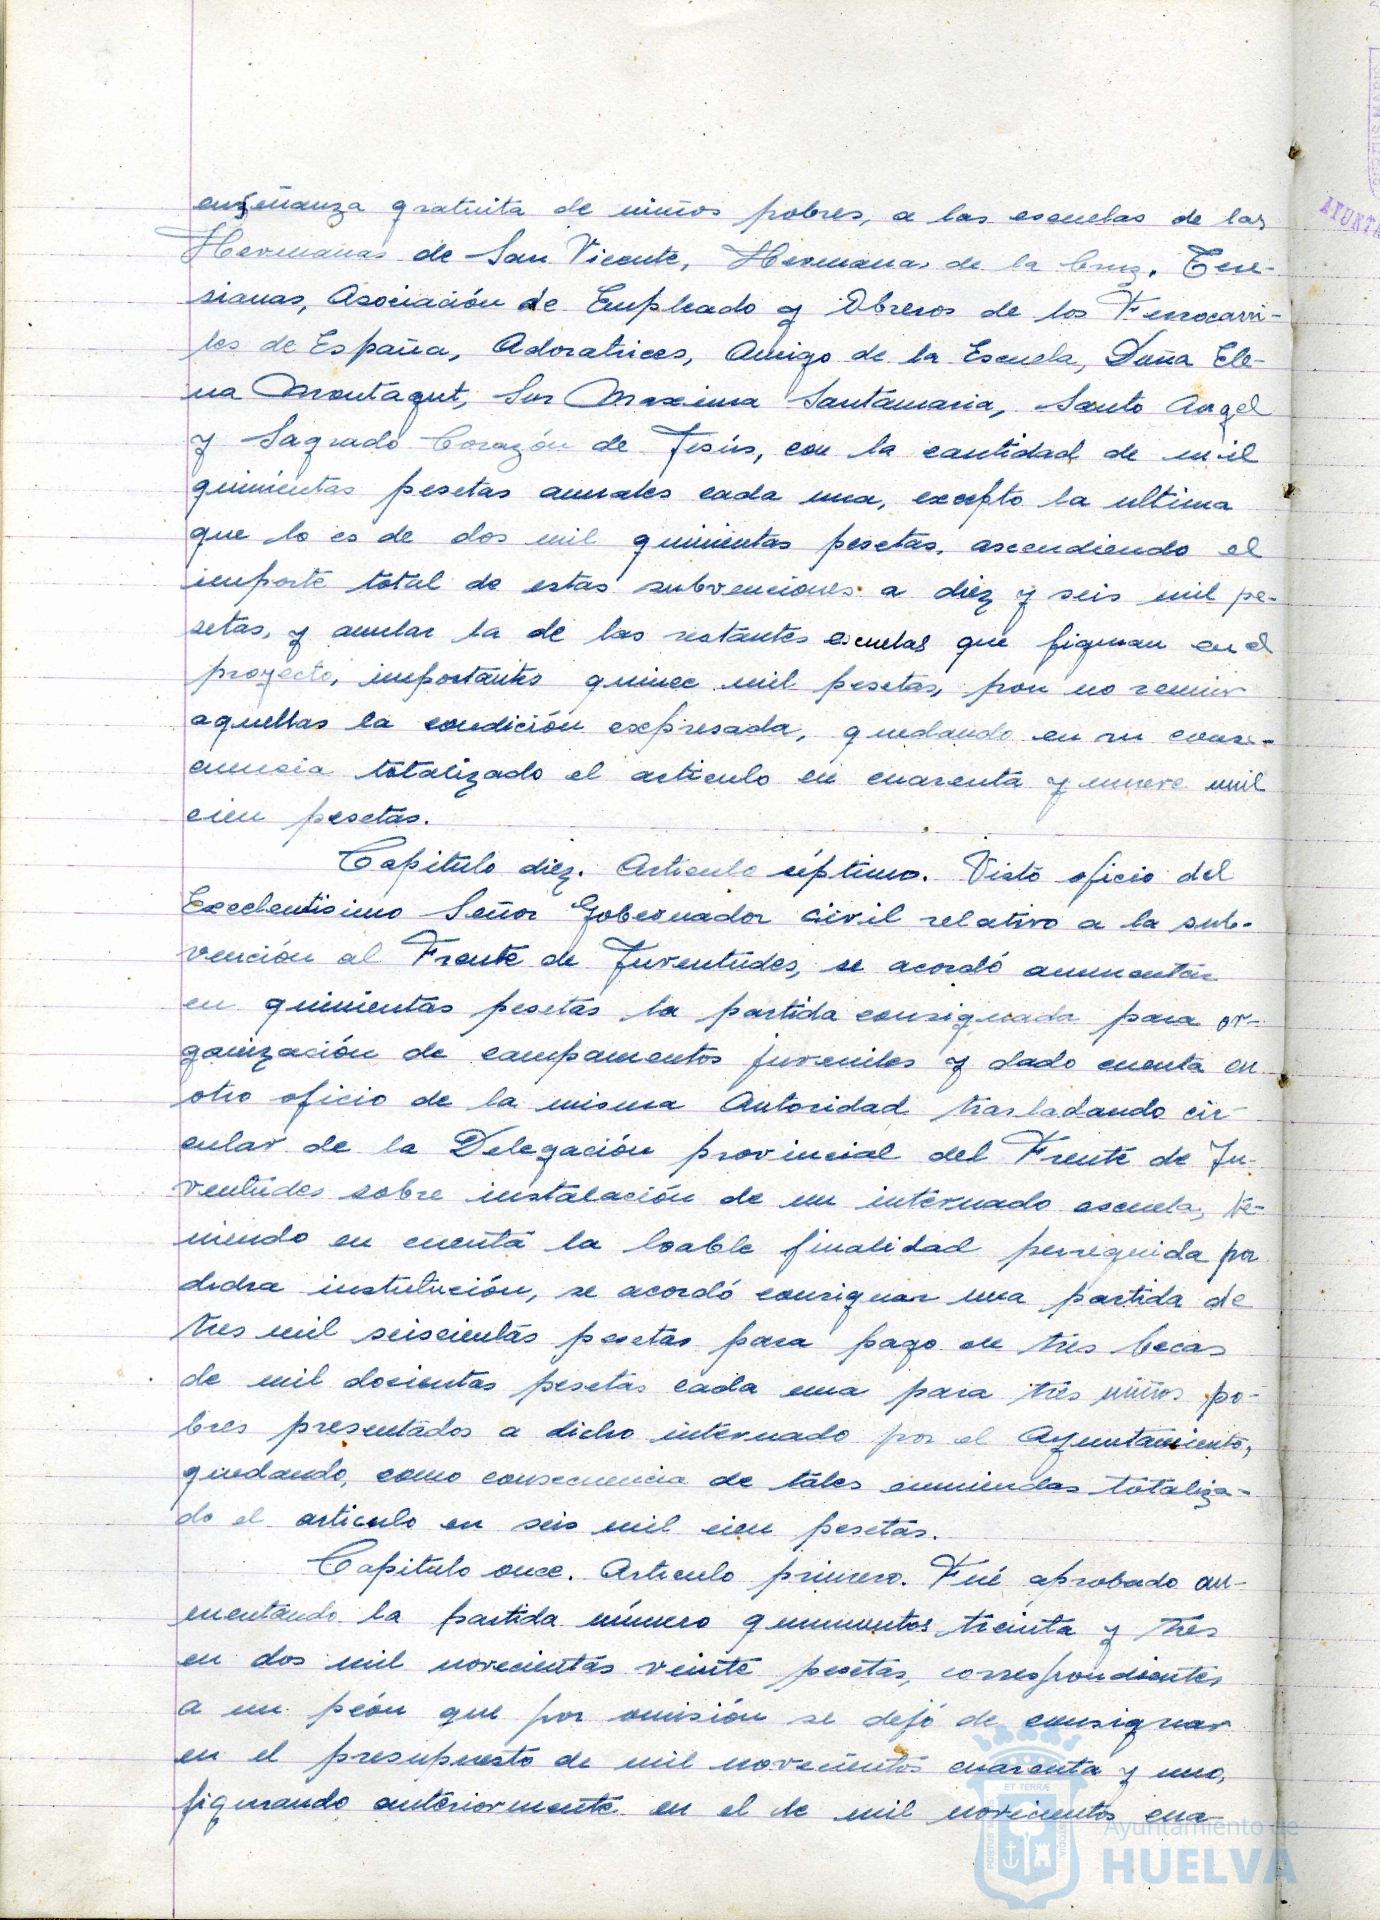 enseñanza gratuita de niños pobres, a las escuelas de las
Hermanas de San Vicente, Hermanas de la Cruz, Tere-
sianas, Asociación de Empleado y Obreros de los Ferrocarri-
les de España, Adoratrices, Amigo de la Escuela, Doña Ele-
na Montagut, Sor Maxima Santamaria, Santo Angel
y Sagrado Corazón de Jesús, con la cantidad de mil
quinientas pesetas anuales cada una, excepto la ultima
que lo es de dos mil quinientas pesetas, ascendiendo el
importe total de estas subvenciones a diez y seis mil pe-
setas, y anular la de las restantes escuelas que figuran en el
proyecto, importantes quince mil pesetas, por no reunir
aquellas la condición expresada, quedando en su conse-
cuencia totalizado el articulo en cuarenta y nueve mil
cien pesetas.
Capitulo diez. Articulo séptimo. Visto oficio del
Excelentisimo Señor Gobernador Civil relativo a la sub-
vención al Frente de Juventudes, se acordó aumentar
en quinientas pesetas la partida consignada para or-
ganización de campamentos juveniles y dado cuenta en
otro oficio de la misma Autoridad trasladando cir-
cular de la Delegación provincial del Frente de Ju-
ventudes sobre instalación de un internado escuela, te-
niendo en cuenta la loable finalidad perseguida por
dicha institución, se acordó consignar una partida de
tres mil seiscientas pesetas para pago de tres becas
de mil docientas pesetas cada una para tres niños po-
bres presentados a dicho internado por el Ayuntamiento,
quedando, como consecuencia de tales enmiendas totaliza-
do el articulo en seis mil cien pesetas.
Capitulo once. Articulo primero. Fué aprobado au-
mentando la partida número quinientos treinta y tres
en dos mil novecientas veinte pesetas, correspondientes
a un peón que por omisión se dejó de consignar
en el presupuesto de mil novecientos cuarenta y uno,
figurando anteriormente en el de mil novecientos cua-
ET TERRÆ
Ayuntamiento de
HUELVA